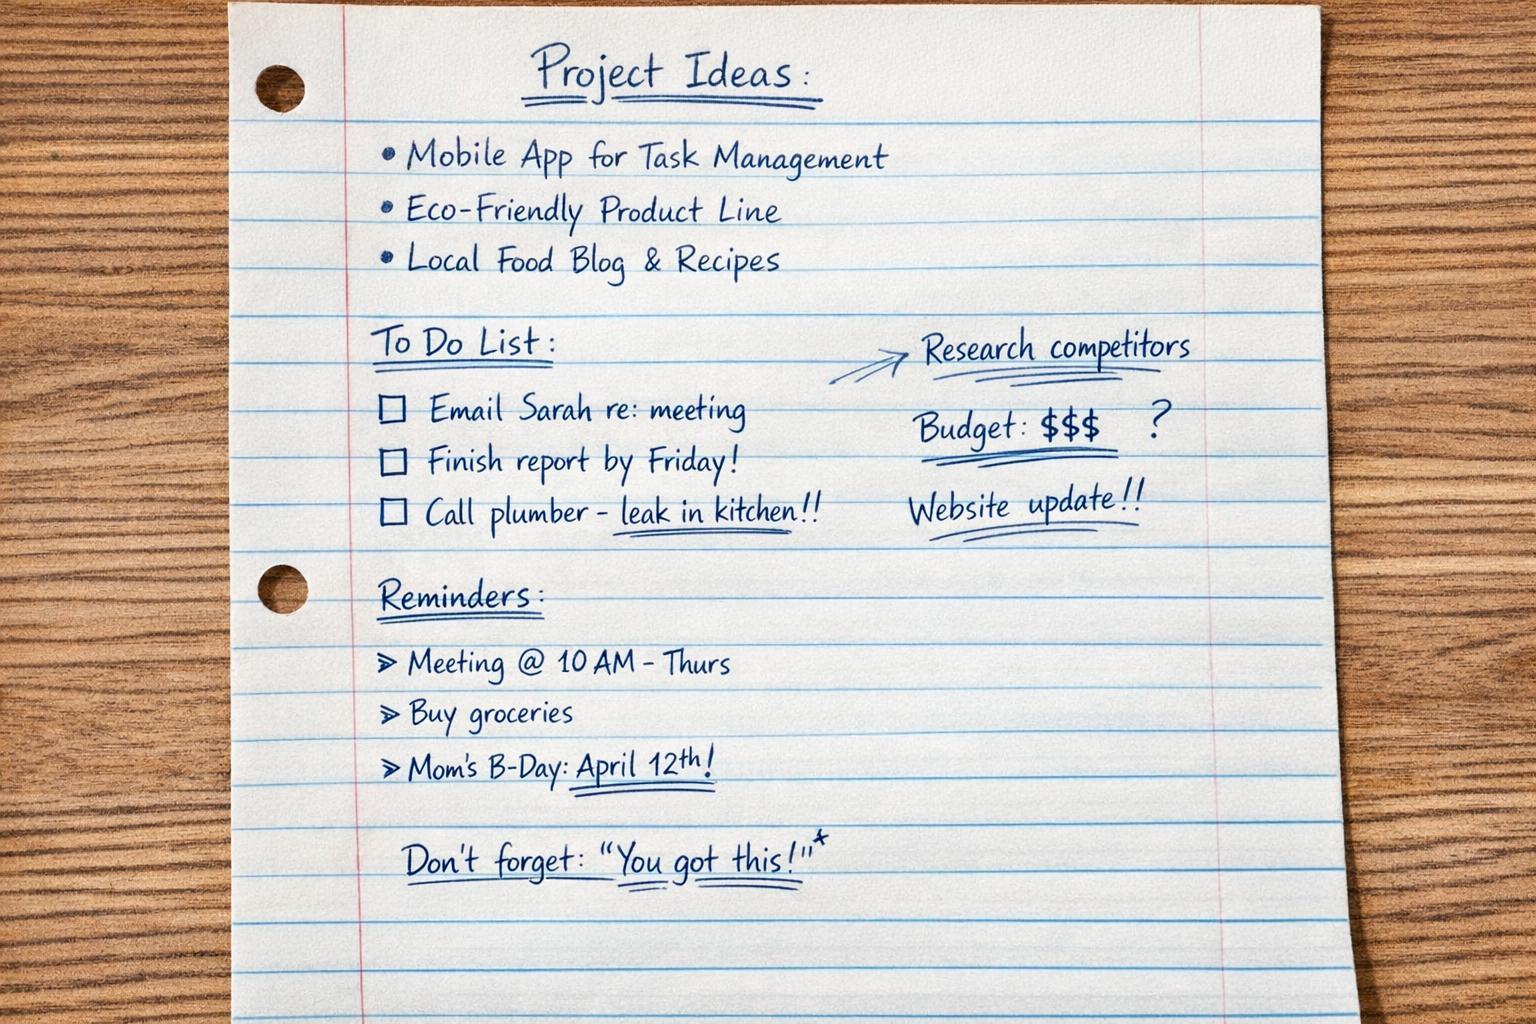 Project Ideas:
• Mobile App for Task Management
• Eco-Friendly Product Line
• Local Food Blog & Recipes
To Do List:
☐ Email Sarah re: meeting
☐ Finish report by Friday!
☐ Call plumber - leak in kitchen!!
→ Research competitors
Budget: $$$ ?
Website update!!
Reminders:
➢ Meeting @ 10 AM - Thurs
➢ Buy groceries
➢ Mom's B-Day: April 12th!
Don't forget: "You got this!"*